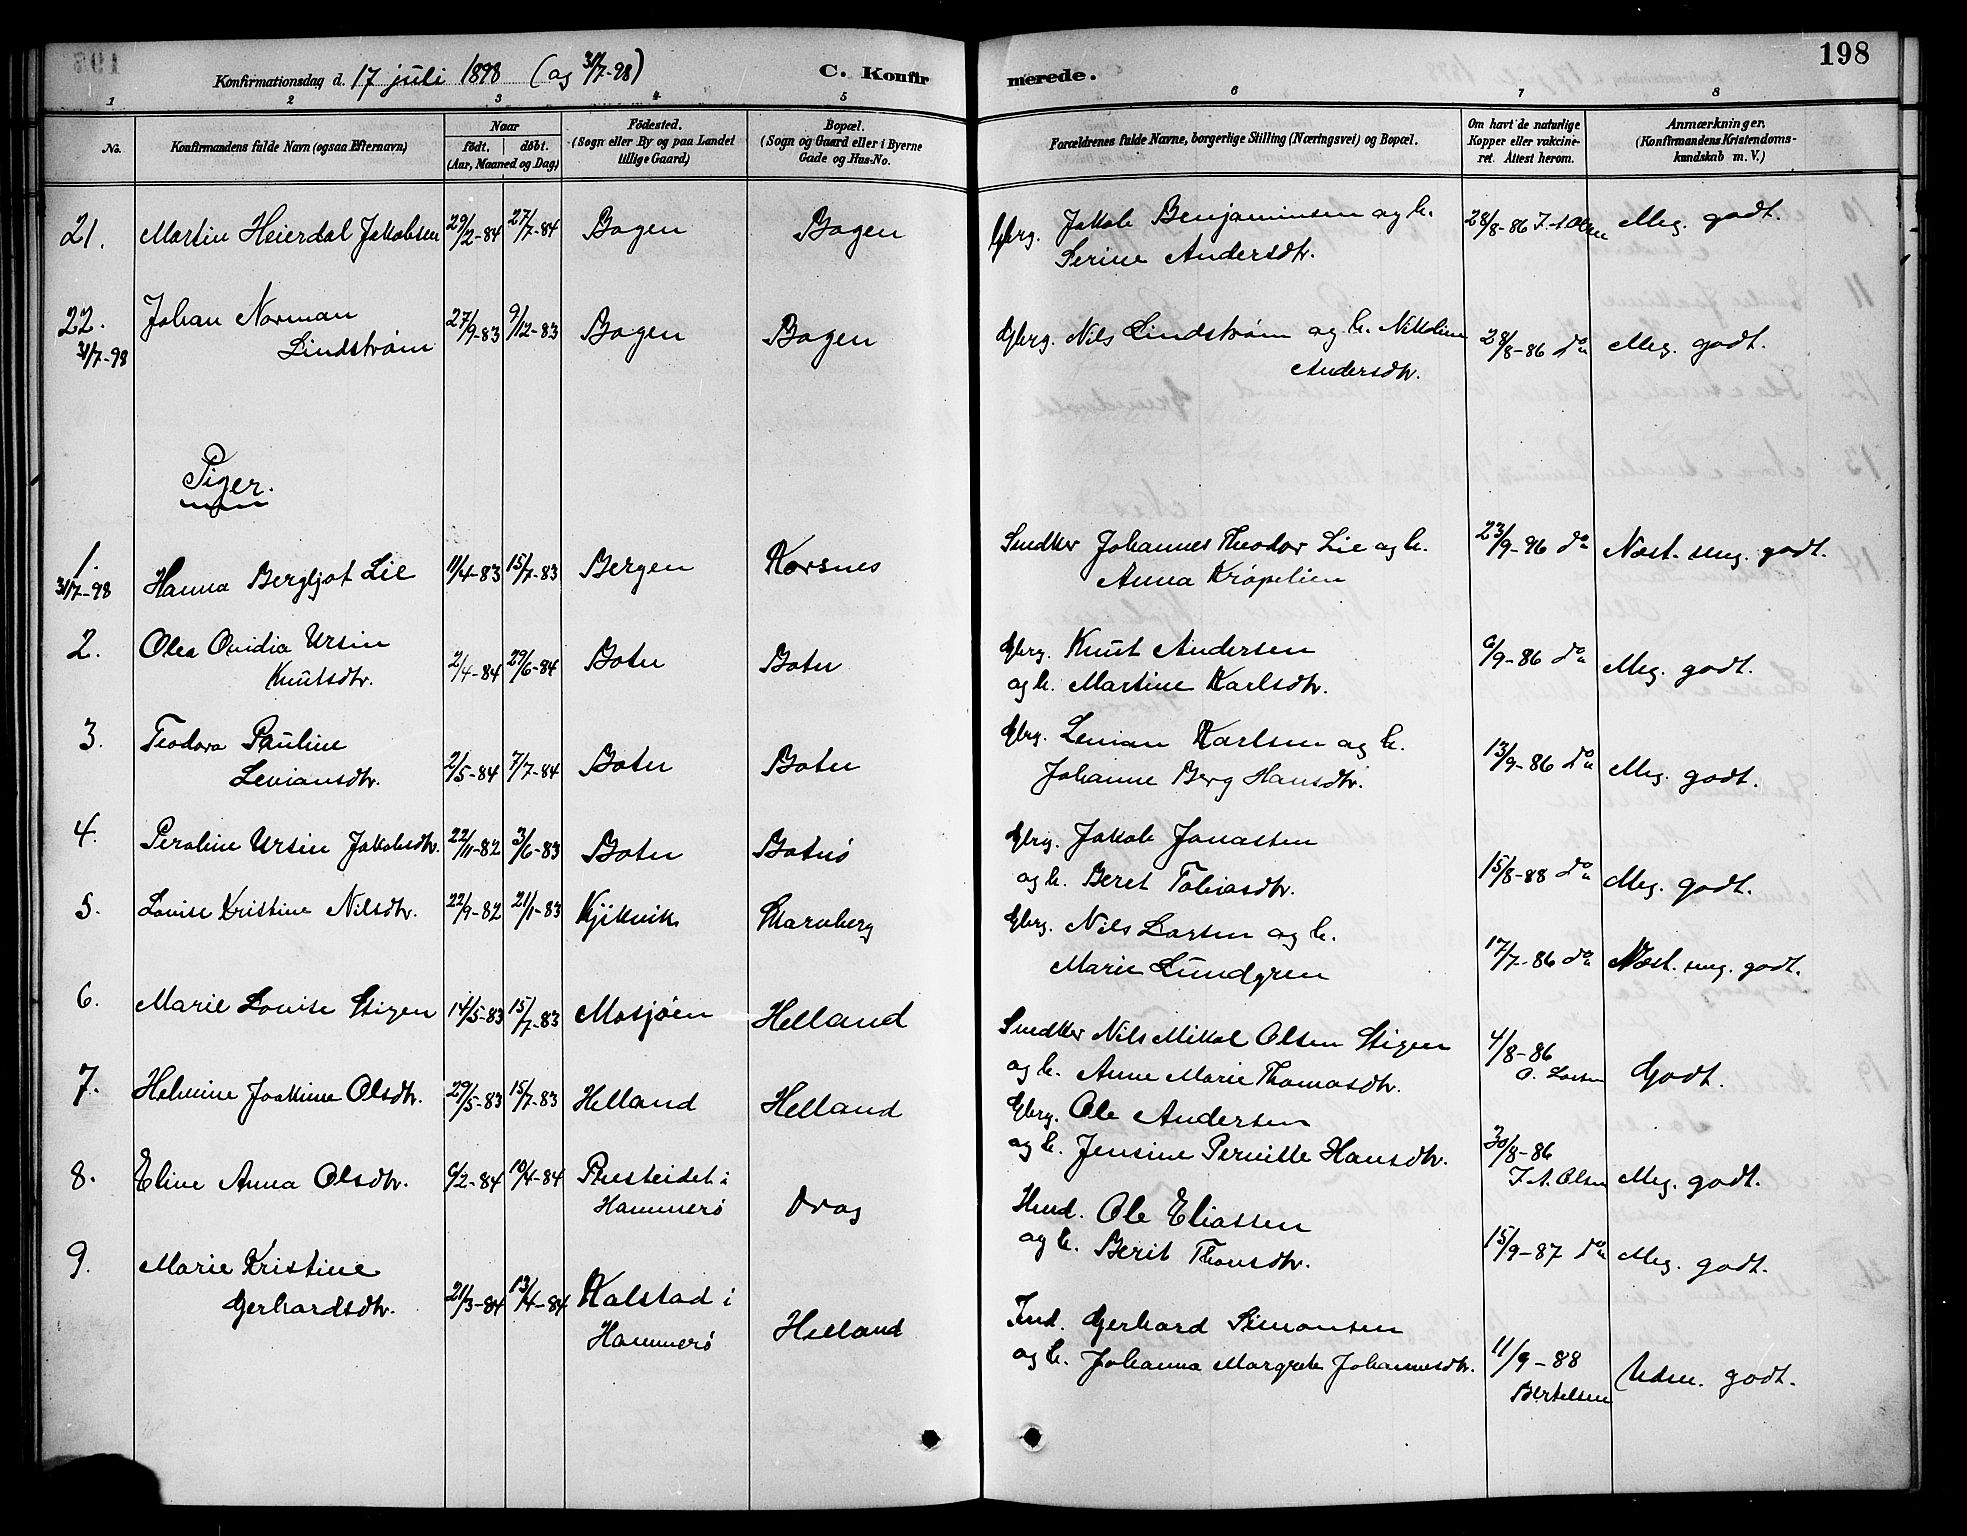 198
Konfirmationsdag d. 17 juli 1898 (og 31/7-98) C. Konfir merede.
1 2 3 4 5 6 7 8
No. Konfirmandens fulde Navn (ogsaa Efternavn)
Naar
født. døbt.
(Aar, Maaned og Dag)
Fødested.
(Sogn eller By og paa Landet
tillige Gaard)
Bopæl.
(Sogn og Gaard eller i Byerne
Gade og Hus-No.
Forældrenes fulde Navne, borgerlige Stilling (Næringsvei) og Bopæl.
Om havt de naturlige
Kopper eller vakcine-
ret. Attest herom.
Anmærkninger.
(Konfirmandens Kristendoms-
kundskab m. V.)
21. Martin Heierdal Jakobsen 29/2-84 27/7-84 Bogen Bogen Gbrg. Jakob Benjaminsen og h. 28/8-86 J. A Olsen Meg. godt.
Serine Andersdtr.
22. Johan Norman 27/9-83 9/12-83 Bogen Bogen Gbrg. Nils Lindstrøm og h. Nikoline 28/8-86 do Meg. godt.
31/7-98 Lindstrøm Andersdtr.
Piger.
1. Hanna Bergljot Lie 11/4-83 15/7-83 Bergen Korsnes Snedker Johannes Theodor Lie og h. 23/9-96 do Næst. mg. godt.
31/7-98 Anna Krøpelien
2. Olea Ovidia Ursin 2/4-84 29/6-84 Botn Botn Gbrg. Knut Andersen 6/9-86 do Meg. godt.
Knutsdtr. og h. Martine Karlsdtr.
3. Teodora Pauline 2/5-84 7/7-84 Botn Botn Gbrg. Levian Karlsen og h. 13/9-86 do Meg. godt.
Leviansdtr. Johanne Berg Hansdtr.
4. Peroline Ursin Jakobsdtr. 22/11-82 3/6-83 Botn Botnø Gbrg. Jakob Jonassen 15/8-88 do Meg. godt.
og h. Beret Tobiasdtr.
5. Lovise Kristine Nilsdtr. 22/9-82 21/1-83 Kjikvik Skarvberg Gbrg. Nils Larsen og h. 17/7-86 do Næst. mg. godt.
Marie Lundgren
6. Marie Lovise Stigen 14/5-83 15/7-83 Mosjøen Helland Snedker Nils Mikal Olsen Stigen 4/8-86 Godt.
og h. Anne Marie Thomasdtr. O. Larsen
7. Helmine Joakime Olsdtr. 29/5-83 15/7-83 Helland Helland Gbrg. Ole Andersen 30/8-86 Meg. godt.
og h. Jensine Pernille Hansdtr. J. A. Olsen
8. Eline Anna Olsdtr. 6/2-84 10/4-84 Presteidet i Drag Hmd. Ole Eliassen 15/9-87 do Meg. godt.
Hammerø og h. Berit Thomsdtr.
9. Marie Kristine 21/3-84 13/4-84 Kalstad i Helland Ind. Gerhard Simonsen 11/9-88 Udm. godt.
Gerhardsdtr. Hammerø og h. Johanna Margrete Johannesdtr. Bertelsen